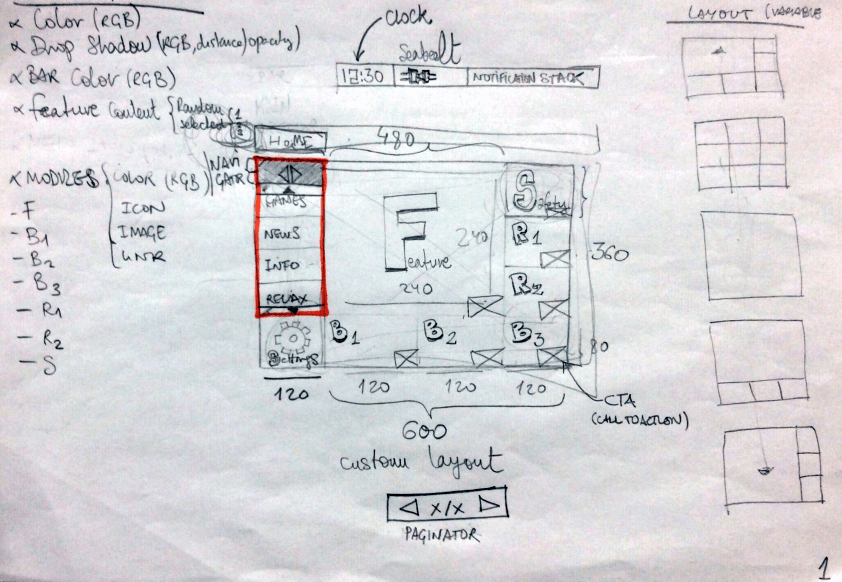 Color (RGB)
Drop Shadow (RGB, distance/opacity)
BAR Color (RGB)
Feature Content { Random
selected
MODULES { COLOR (RGB)
ICON
IMAGE
LINK
- F
- B1
- B2
- B3
- R1
- R2
- S
clock
Seatbelt
12:30
NOTIFICATION STACK
LAYOUT (VARIABLE
HOME
480
NAVI
GATR
GAMES
NEWS
INFO
RELAX
Settings
Feature
240
240
Safety
R1
R2
360
B1
B2
B3
80
120
120
120
120
CTA
(CALL TO ACTION)
600
custom layout
x/x
PAGINATOR
1